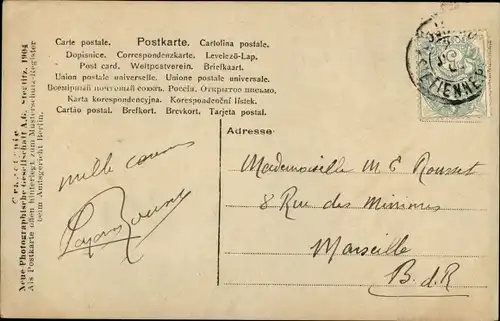 Carte postale. Postkarte. Cartolina postale.
Dopisnice. Correspondenzkarte. Levelező-Lap.
Post card. Weltpostverein. Briefkaart.
Union postale universelle. Unione postale universale.
Всемірный почтовый союзъ. Россія. Открытое письмо.
Karta korespondencyjna. Korespondenční lístek.
Cartão postal. Brefkort. Brevkort. Tarjeta postal.
Neue Photographische Gesellschaft A.G. Steglitz. 1904
Als Postkarte offen hinterlegt zum Musterschutz-Register
beim Amtsgericht Berlin.
Adresse:
mille
Mademoiselle M E Rousset
8 Rue des Minimes
Marseille
B. d. R
ETIENNE